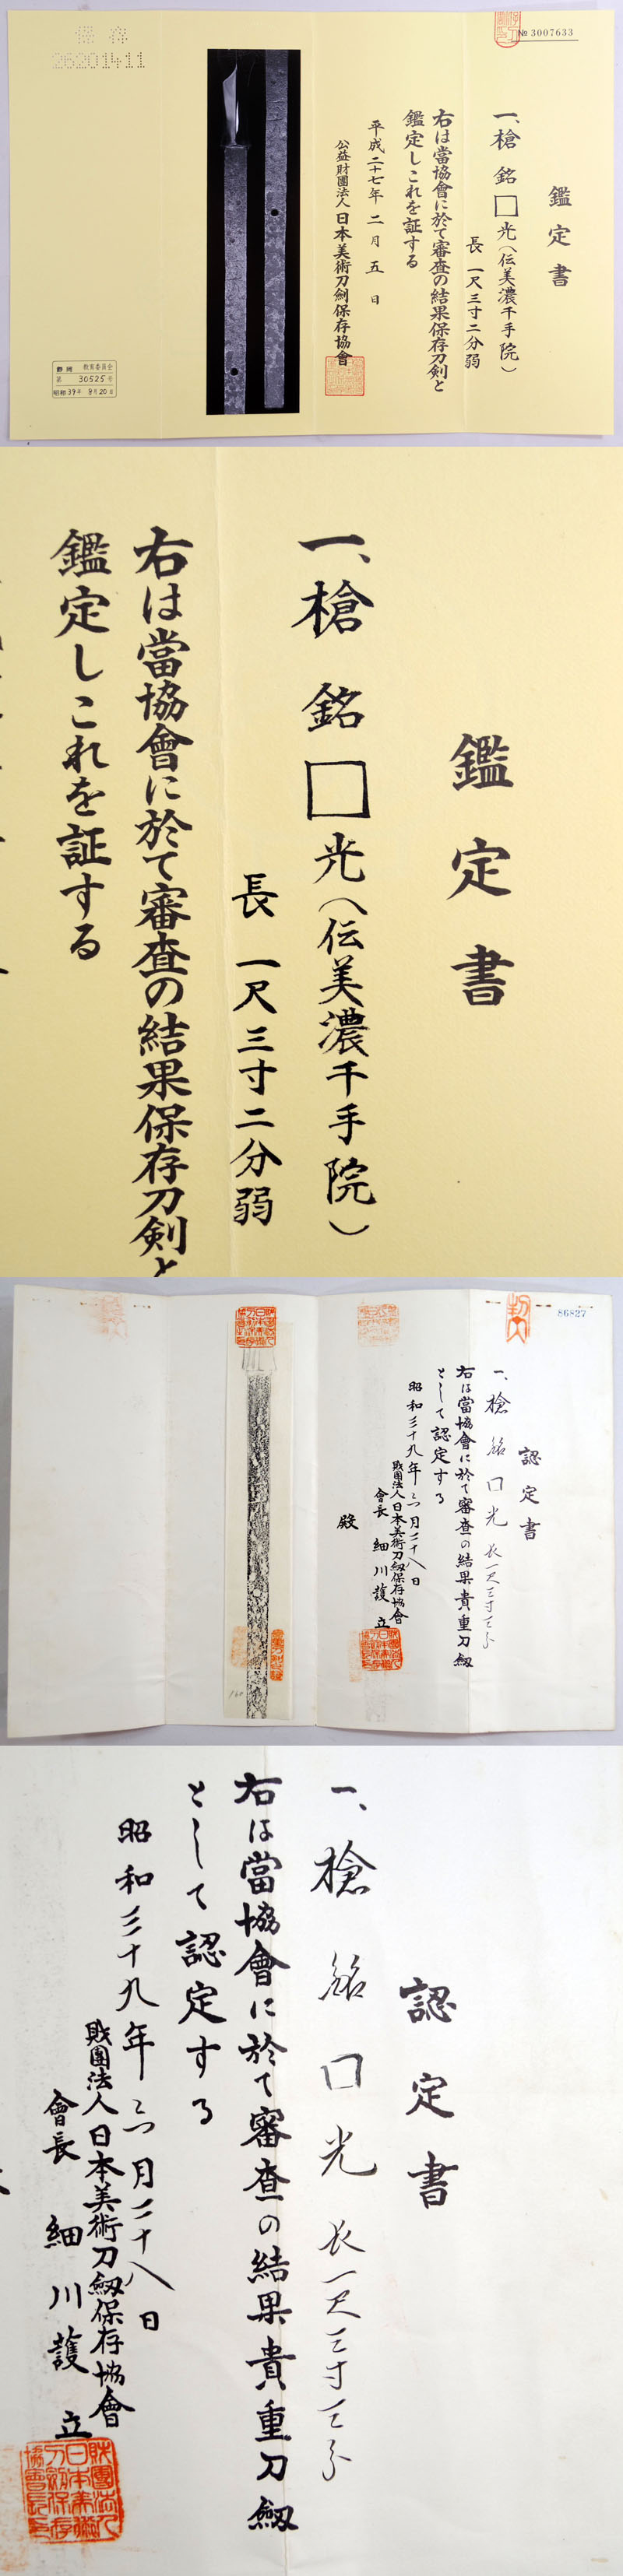 № 3007633
鑑定書
一、槍 銘 □光(伝美濃千手院)
長 一尺三寸二分弱
右は當協會に於て審査の結果保存刀剣と
鑑定しこれを証する
平成二十七年 二月 五日
公益財團法人 日本美術刀劍保存協會
保存
26201411
静岡 教育委員会
第 30525 号
昭和39年 8月20日
鑑定書
一、槍 銘 □光(伝美濃千手院)
長 一尺三寸二分弱
右は當協會に於て審査の結果保存刀剣と
鑑定しこれを証する
86827
認定書
一、槍 銘 □光 長一尺三寸三分
右は當協會に於て審査の結果貴重刀劔
として認定する
昭和三十九年 月二十八日
財團法人日本美術刀劔保存協會
會長 細川護立
殿
認定書
一、槍 銘 □光 長一尺三寸三分
右は當協會に於て審査の結果貴重刀劔
として認定する
昭和三十九年 月二十八日
財團法人日本美術刀劔保存協會
會長 細川護立